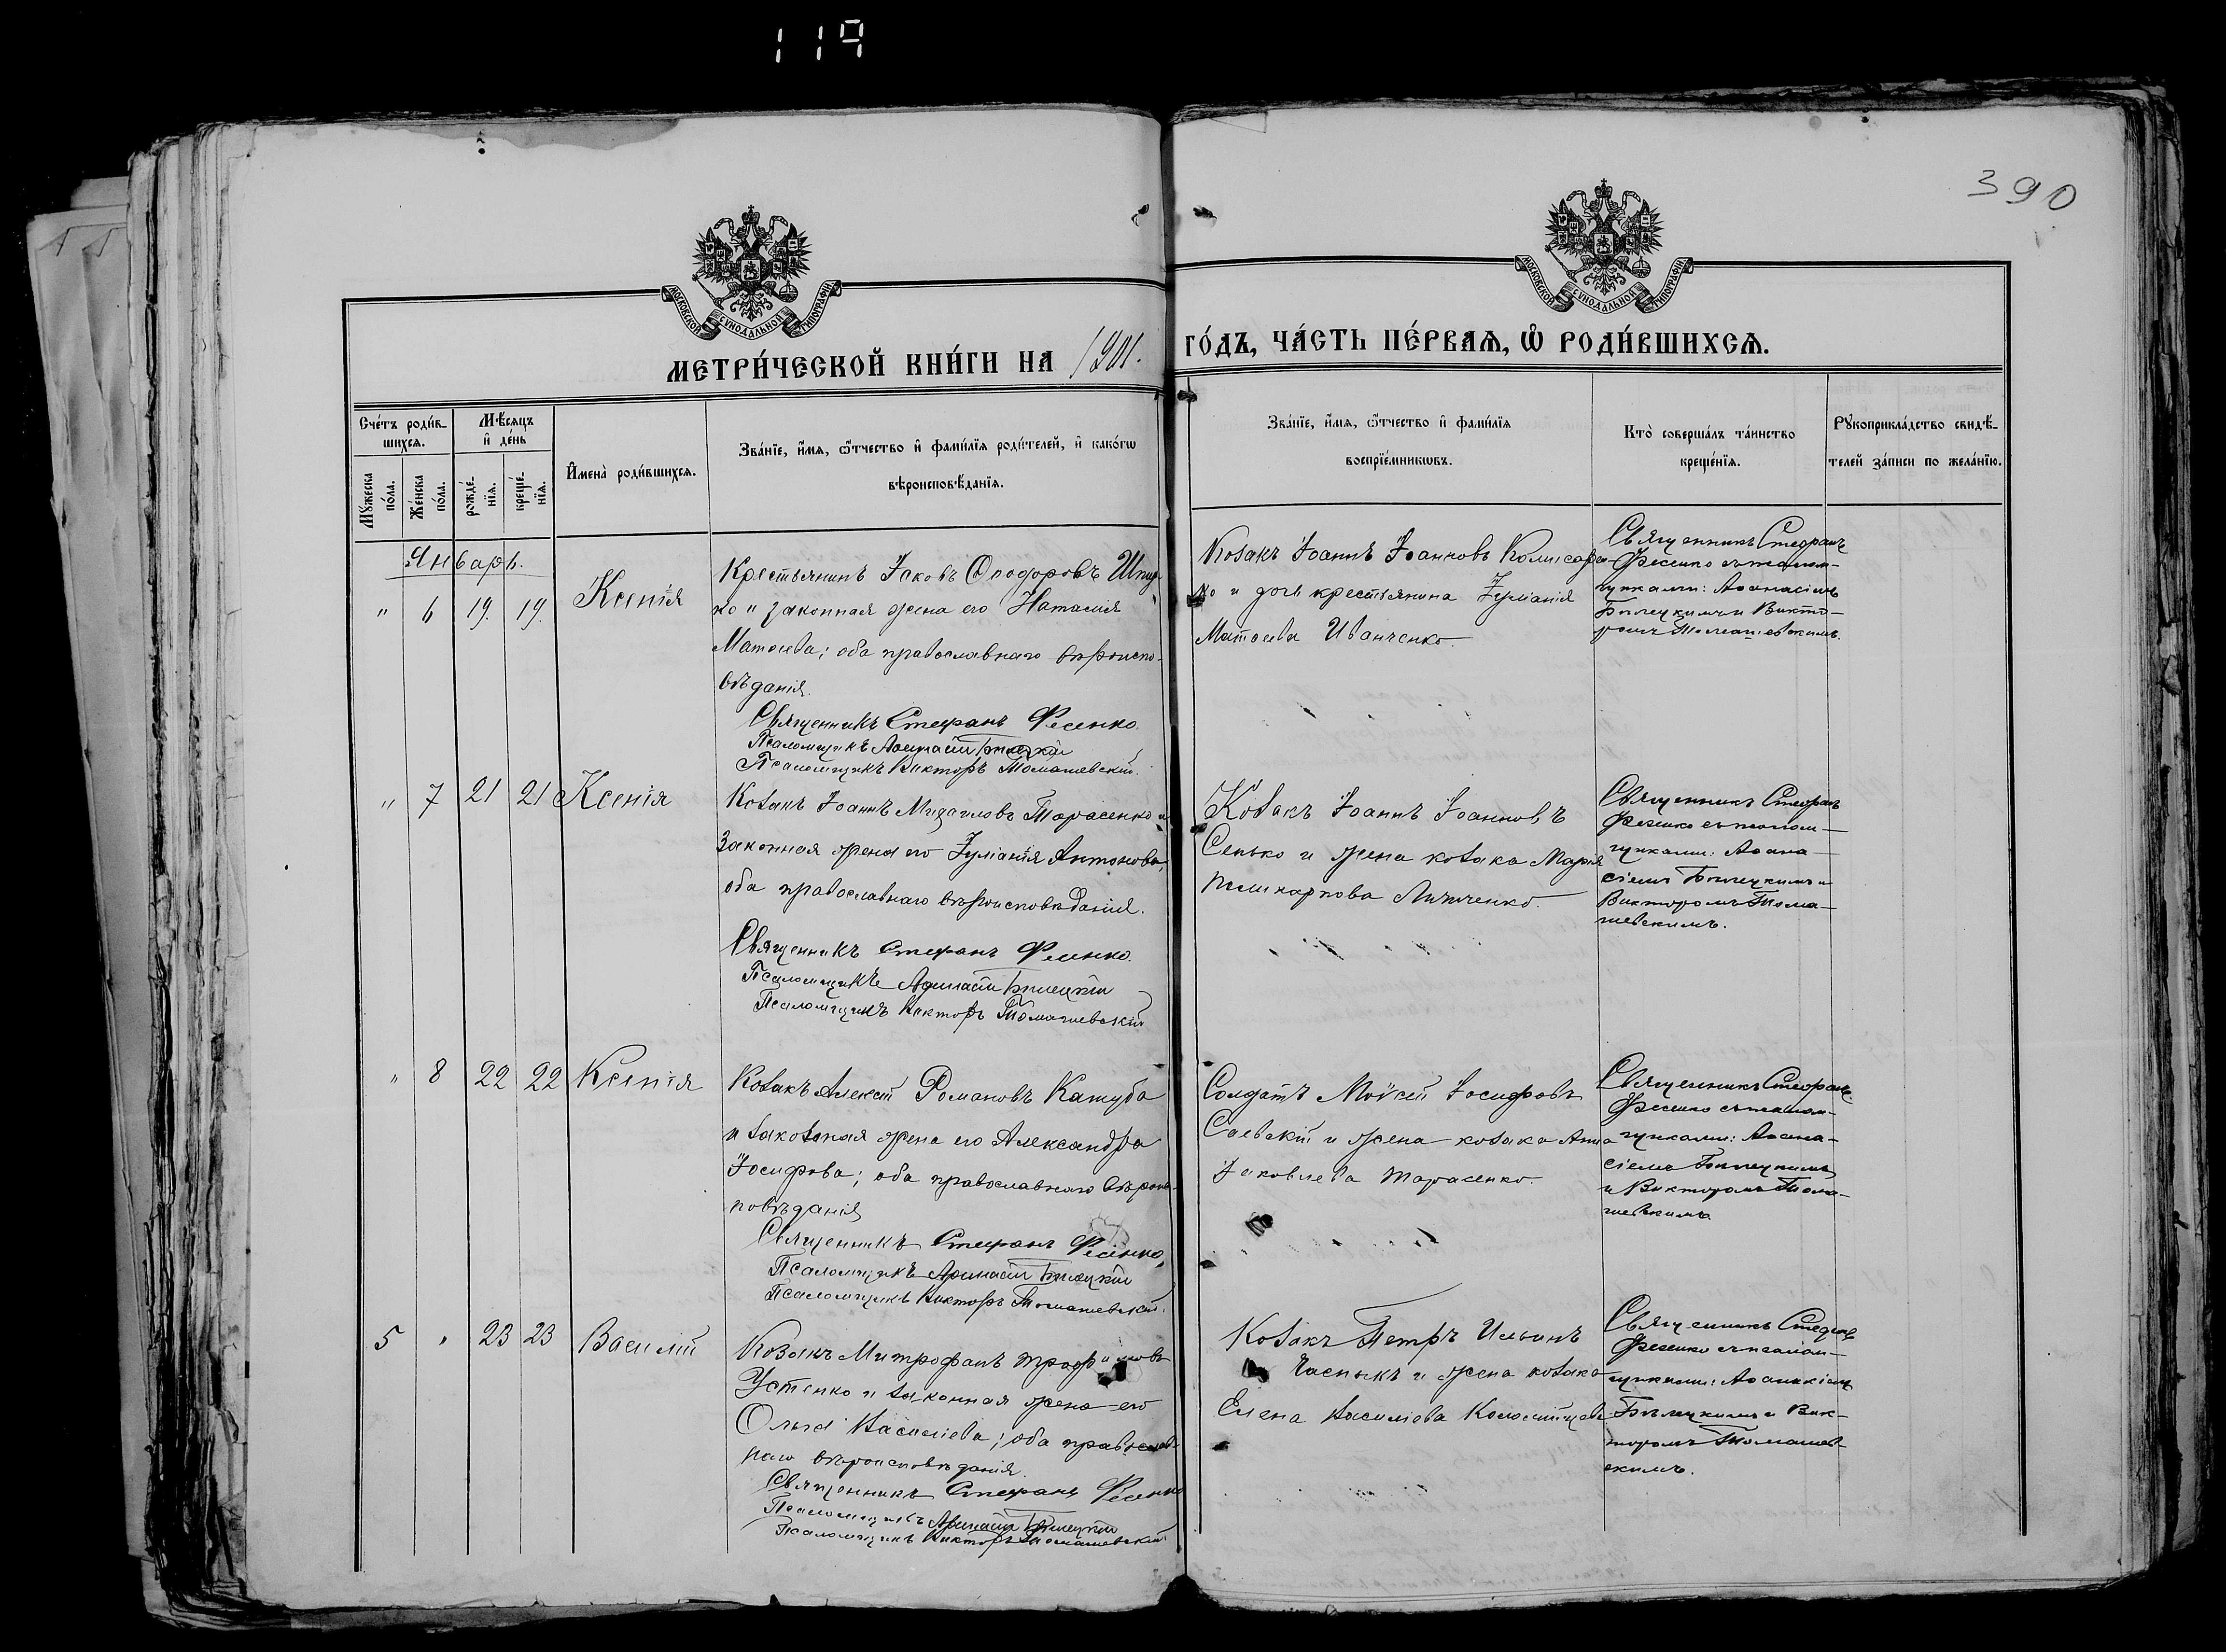 119
390
МОСКОВСКОЙ СѴНОДАЛЬНОЙ ТИПОГРАФІИ
МОСКОВСКОЙ СѴНОДАЛЬНОЙ ТИПОГРАФІИ
МЕТРИ́ЧЕСКОЙ КНИ́ГИ НА 1901.
ГО́ДЪ, ЧА́СТЬ ПЕ́РВАЯ, Ѡ РОДИ́ВШИХСЯ.
Сче́тъ роди́в-
шихся.
Мѣсяцъ
и҆ де́нь
Мꙋжеска
по́ла.
Же́нска
по́ла.
рожде́-
нїя.
креще́-
нїя.
И҆мена̀ роди́вшихся.
Зва́нїе, и҆́мя, ѻ҆́тчество и҆ фами́лїя роди́телей, и҆ како́гѡ
вѣроисповѣ́данїя.
Зва́нїе, и҆́мя, ѻ҆́тчество и҆ фами́лїя
воспрїе́мникѡвъ.
Кто̀ соверша́лъ та́инство
креще́нїя.
Рꙋкоприкла́дство свидѣ́-
телей за́писи по жела́нїю.
Январь.
" 6 19. 19. Ксенія
Крестьянинъ Іаковъ Ѳеодоровъ
ко и законная жена его Наталія
Матѳеева; оба православнаго вѣроиспо-
вѣданія.
Священникъ Стефанъ Фесенко.
Псаломщикъ Аѳанасій Бѣлецкій
Псаломщикъ Викторъ Томашевскій.
Козакъ Іоаннъ Іоанновъ Комисаре-
ко и дочь крестьянина Іуліанія
Матѳеева Иванченко.
Священникъ Стефанъ
Фесенко съ псалом-
щиками: Аѳанасіемъ
Бѣлецкимъ и Викто-
ромъ Томашевскимъ.
" 7 21 21 Ксенія
Козакъ Іоаннъ Михаиловъ Тарасенко и
законная жена его Іуліанія Антонова,
оба православнаго вѣроисповѣданія.
Священникъ Стефанъ Фесенко.
Псаломщикъ Аѳанасій Бѣлецкій
Псаломщикъ Викторъ Томашевскій
Козакъ Іоаннъ Іоанновъ
Сенько и жена козака Марія
Поликарпова
Священникъ Стефанъ
Фесенко съ псалом-
щиками: Аѳана-
сіемъ Бѣлецкимъ и
Викторомъ Тома-
шевскимъ.
" 8 22 22 Ксенія
Козакъ Алексѣй Романовъ Кашуба
и законная жена его Александра
Іосифова; оба православнаго вѣроис-
повѣданія
Священникъ Стефанъ Фесенко,
Псаломщикъ Аѳанасій Бѣлецкій
Псаломщикъ Викторъ Томашевскій.
Солдатъ Моѵсей Іосифовъ
Саевскій и жена козака Анна
Іаковлева Тарасенко.
Священникъ Стефанъ
Фесенко съ псалом-
щиками: Аѳана-
сіемъ Бѣлецкимъ
и Викторомъ Тома-
шевскимъ
5 " 23 23 Василій
Козакъ Митрофанъ
Устенко и законная жена его
Ольга Васильева; оба православ-
наго вѣроисповѣданія.
Священникъ Стефанъ Фесенко
Псаломщикъ Аѳанасій Бѣлецкій
Псаломщикъ Викторъ Томашевскій
Козакъ Петръ Ильинъ
Часныкъ и жена козака
Елена Васильева
Священникъ Стефанъ
Фесенко съ псалом-
щиками: Аѳанасіемъ
Бѣлецкимъ и Вик-
торомъ Томашев-
скимъ.